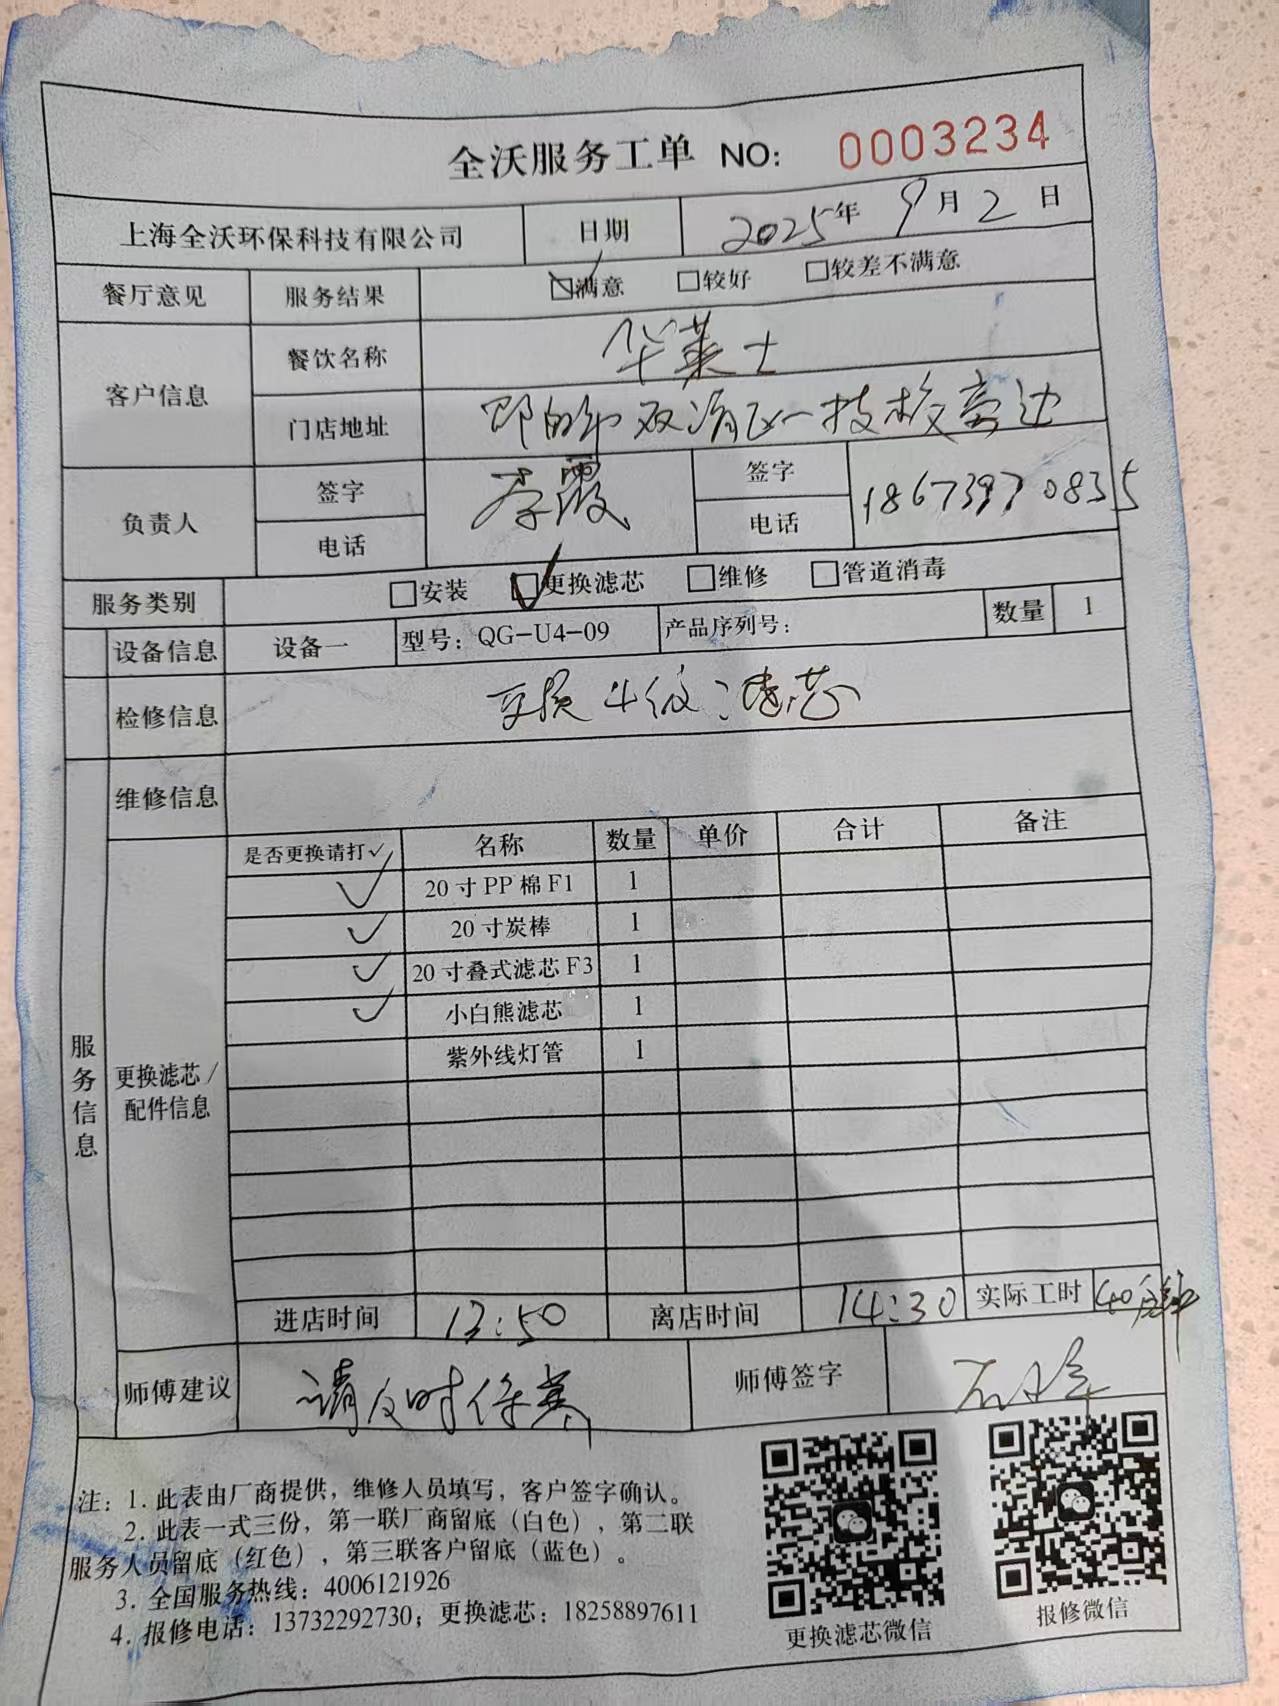 全沃服务工单 NO: 0003234
上海全沃环保科技有限公司 日期 2025年 9月2日
餐厅意见 服务结果 ☑满意 □较好 □较差不满意
客户信息 餐饮名称 华莱士
门店地址 双清 一技校旁边
负责人 签字 李霞 签字
电话 电话 18673970835
服务类别 □安装 ☑更换滤芯 □维修 □管道消毒
设备信息 设备一 型号: QG-U4-09 产品序列号: 数量 1
检修信息 更换4级滤芯
维修信息
服务信息
更换滤芯/
配件信息
是否更换请打✓ 名称 数量 单价 合计 备注
✓ 20寸PP棉F1 1
✓ 20寸炭棒 1
✓ 20寸叠式滤芯F3 1
✓ 小白熊滤芯 1
紫外线灯管 1
进店时间 13:50 离店时间 14:30 实际工时 40分钟
师傅建议 请及时保养 师傅签字
注: 1. 此表由厂商提供，维修人员填写，客户签字确认。
2. 此表一式三份，第一联厂商留底（白色），第二联
服务人员留底（红色），第三联客户留底（蓝色）。
3. 全国服务热线: 4006121926
4. 报修电话: 13732292730; 更换滤芯: 18258897611
更换滤芯微信 报修微信